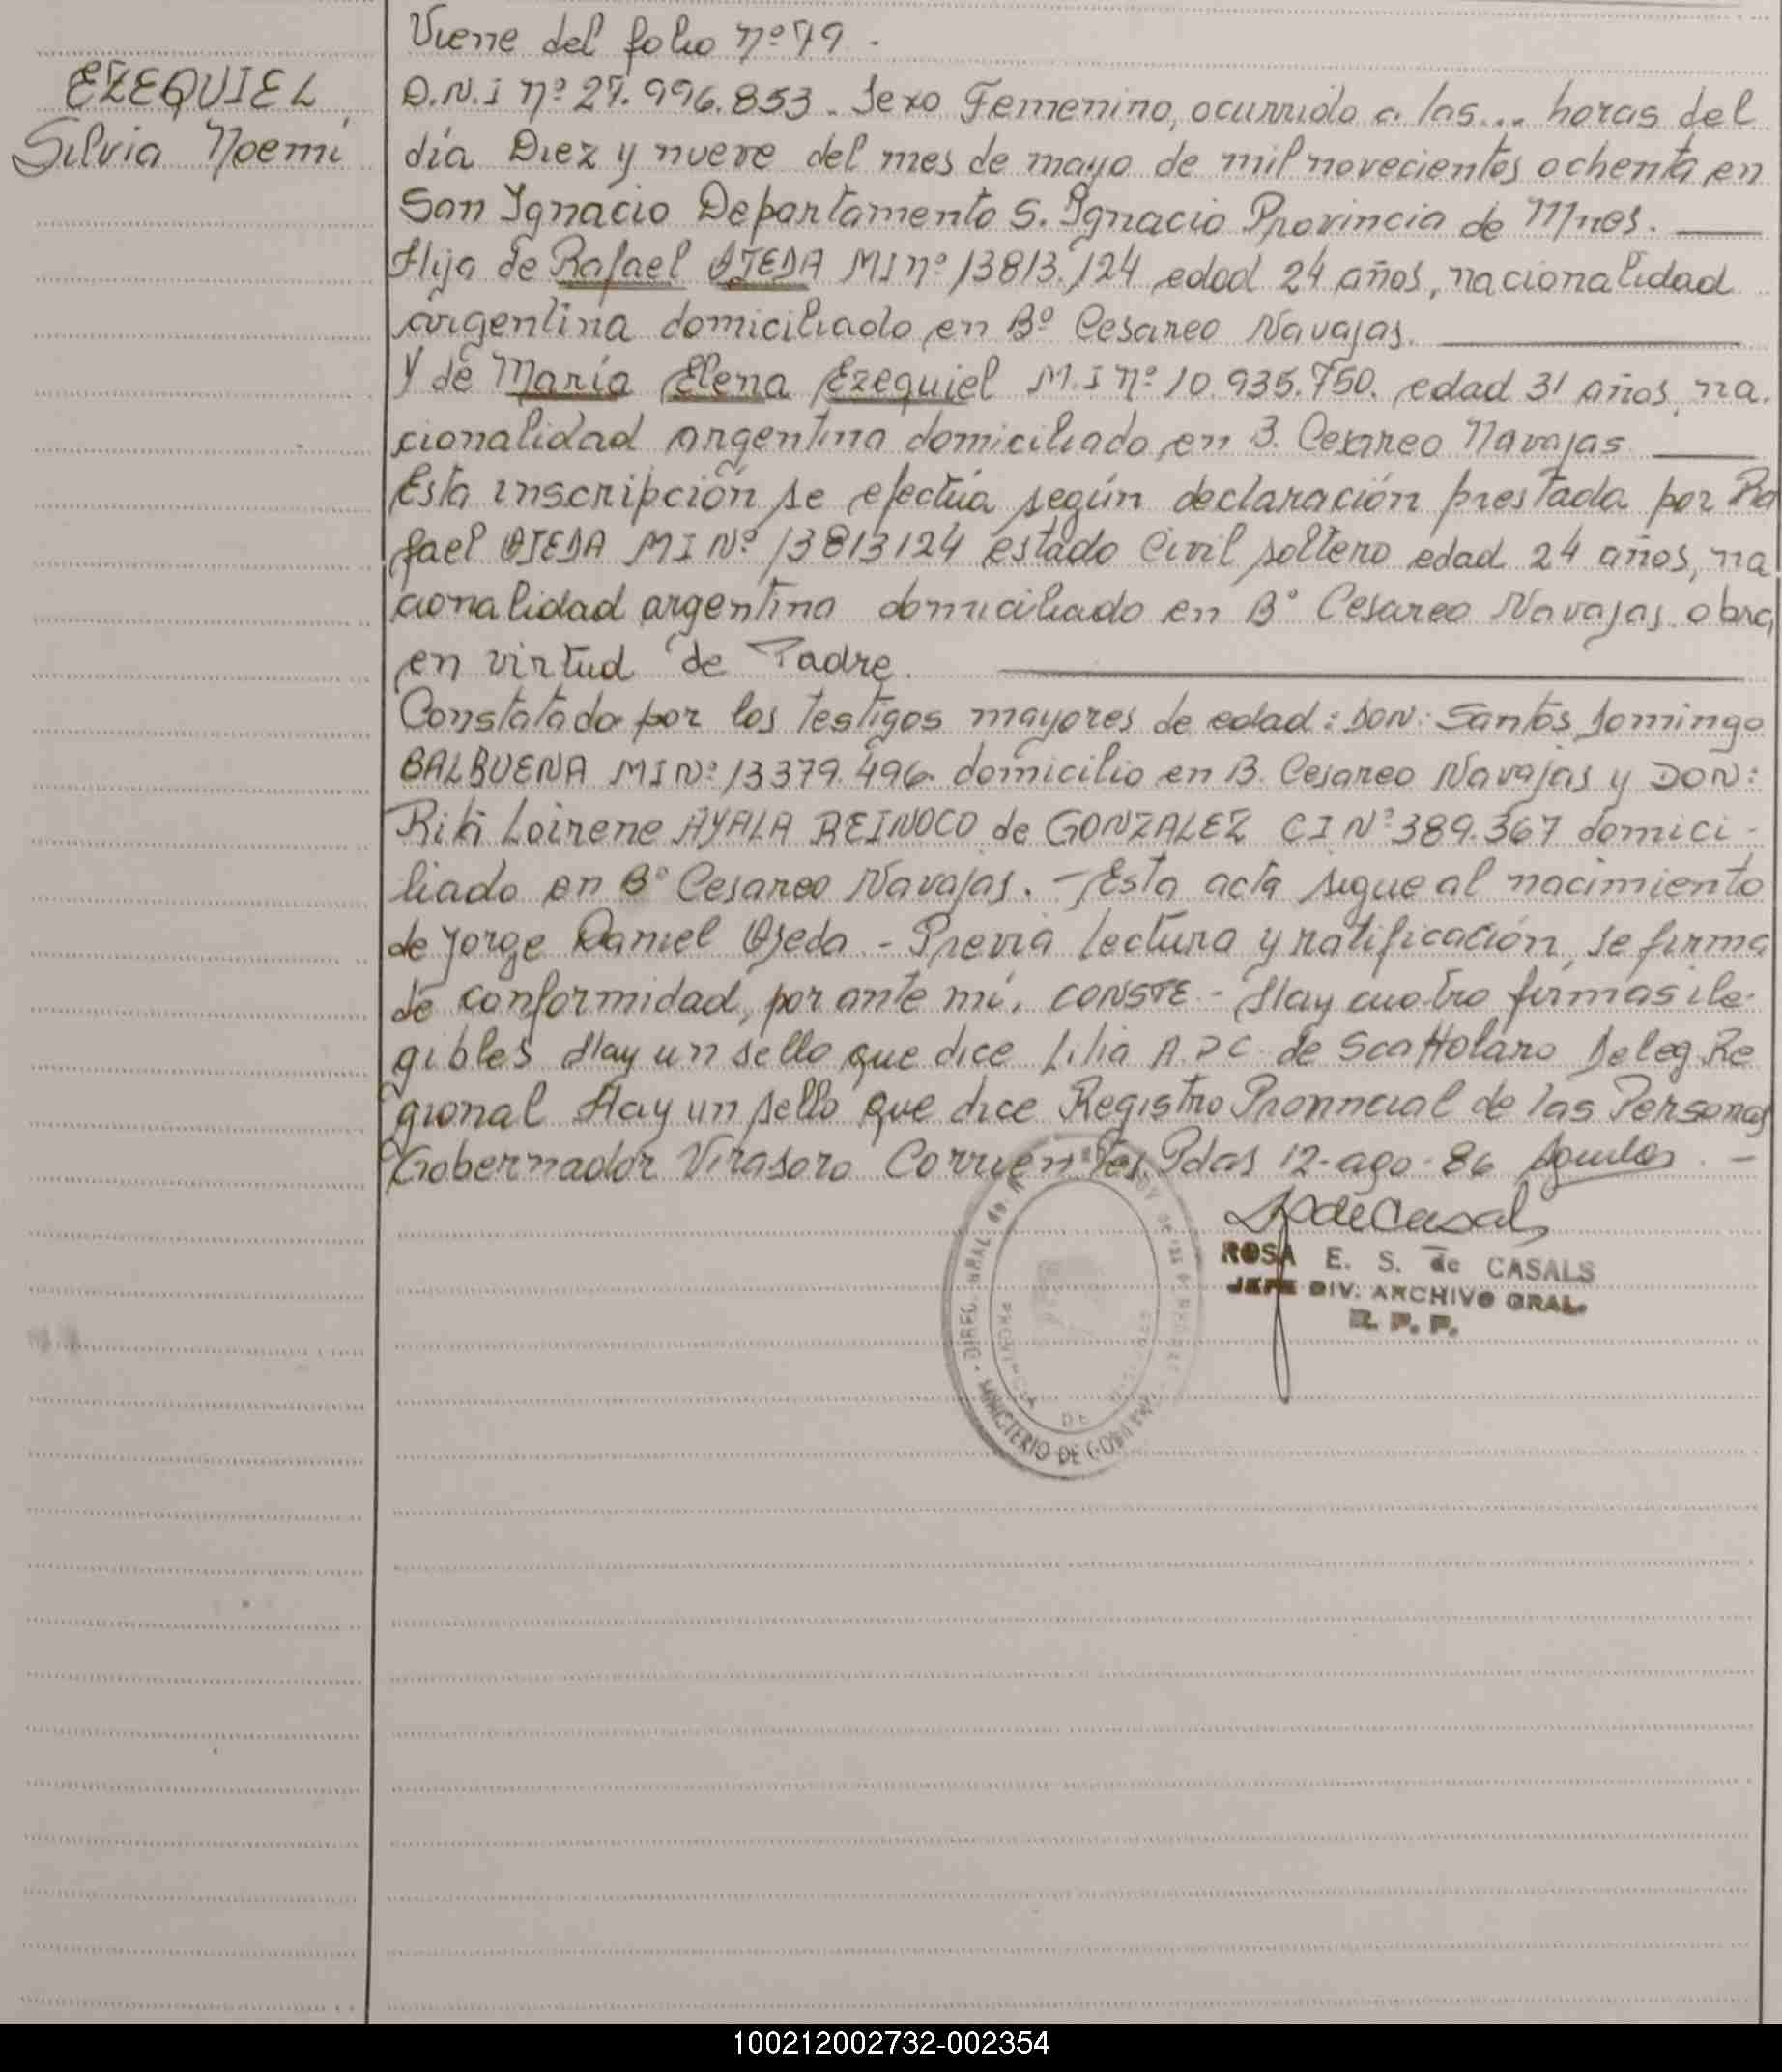 Viene del folio nº 79.
EZEQUIEL
Silvia Noemí
D.N.I nº 27.996.853. Sexo Femenino, ocurrido a las... horas del
día Diez y nueve del mes de mayo de mil novecientos ochenta en
San Ignacio Departamento S. Ignacio Provincia de Mnes.
Hija de Rafael OJEDA MI nº 13813.124 edad 24 años, nacionalidad
argentina domiciliado en Bº Cesareo Navajas.
Y de María Elena Ezequiel M.I nº 10.935.750. edad 31 años, na-
cionalidad argentina domiciliado en B. Cesareo Navajas
Esta inscripción se efectúa según declaración prestada por Ra
fael OJEDA MI Nº 13813124 estado Civil soltero edad 24 años, na
cionalidad argentina domiciliado en Bº Cesareo Navajas obra
en virtud de Padre.
Constatado por los testigos mayores de edad: DON: Santos Domingo
BALBUENA MI Nº 13379.496. domicilio en B. Cesareo Navajas y DON:
Riti Loirene AYALA REINOCO de GONZALEZ CI Nº 389.367 domici-
liado en Bº Cesareo Navajas. - Esta acta sigue al nacimiento
de Jorge Daniel Ojeda - Previa lectura y ratificación, se firma
de conformidad, por ante mí, CONSTE. - Hay cuatro firmas ile-
gibles Hay un sello que dice Lilia A. P C. de Scattolaro Deleg. Re
gional Hay un sello que dice Registro Provincial de las Personas
Gobernador Virasoro Corrientes Pdas 12-ago-86
ROSA E. S. de CASALS
JEFE DIV. ARCHIVO GRAL.
R. P. P.
DIREC. GRAL. de
MINISTERIO DE GOBIERNO
100212002732-002354